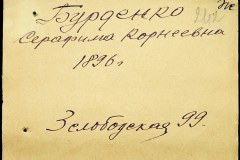 Бурденко
Серафима Корнеевна
1896 г
3 Слободская 99.